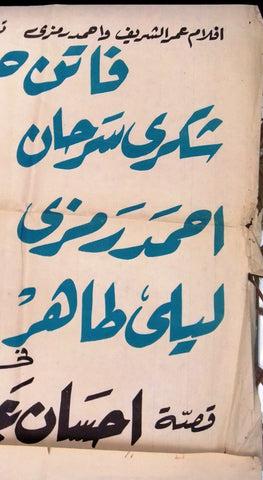 افلام عمر الشريف واحمد رمزى
فاتن
شكرى سرحان
احمد رمزى
ليلى طاهر
فى
قصة احسان